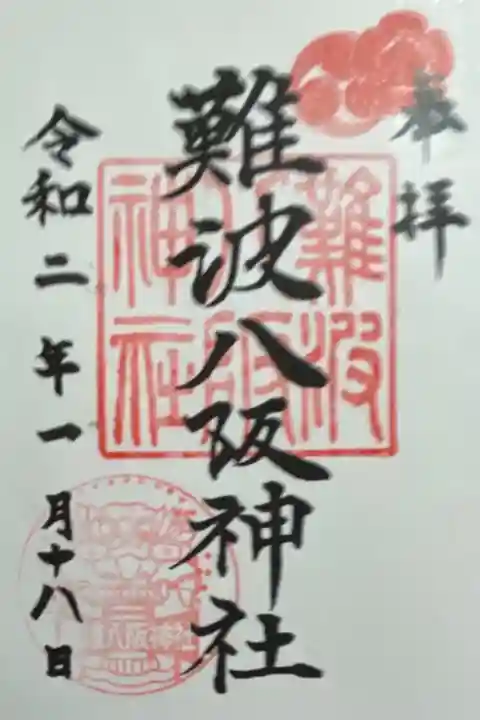 奉拝
難波八阪神社
令和二年一月十八日
難波
八阪
神社
難波八阪神社